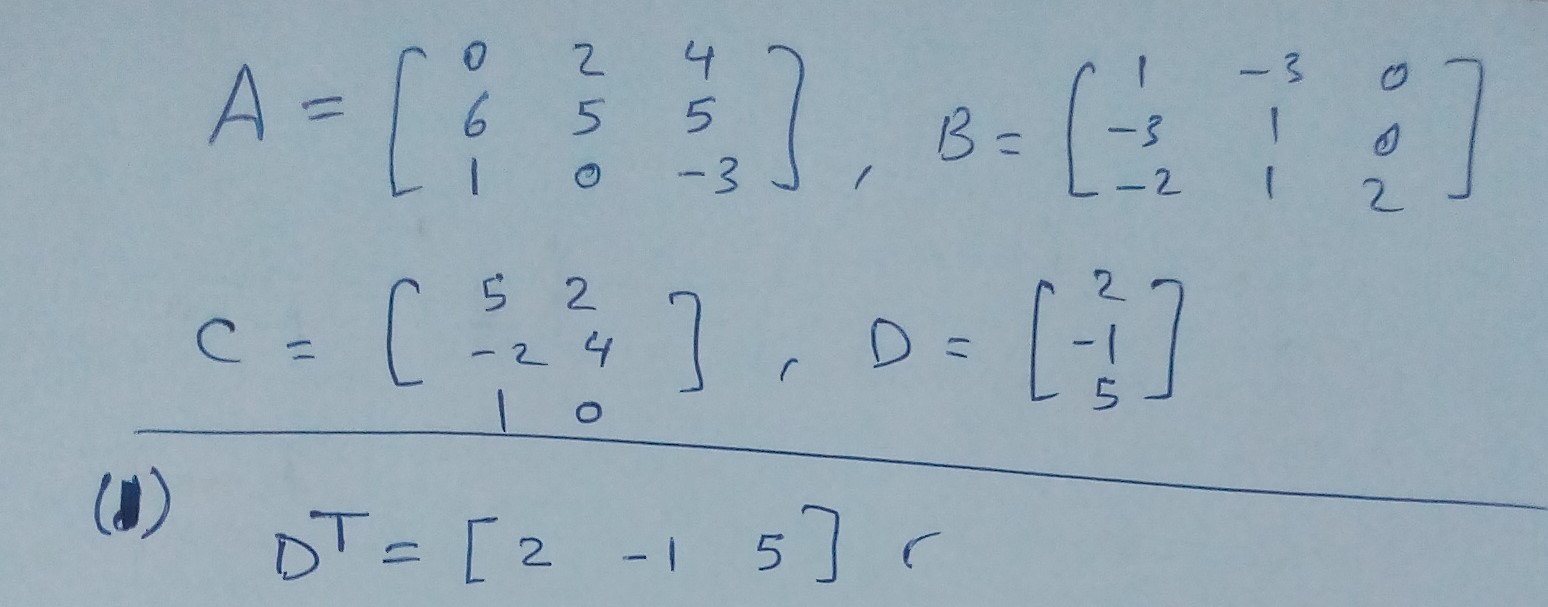 A = [ 0 2 4
6 5 5
1 0 -3 ] , B = [ 1 -3 0
-3 1 0
-2 1 2 ]
C = [ 5 2
-2 4
1 0 ] , D = [ 2
-1
5 ]
D^T = [ 2 -1 5 ] ,